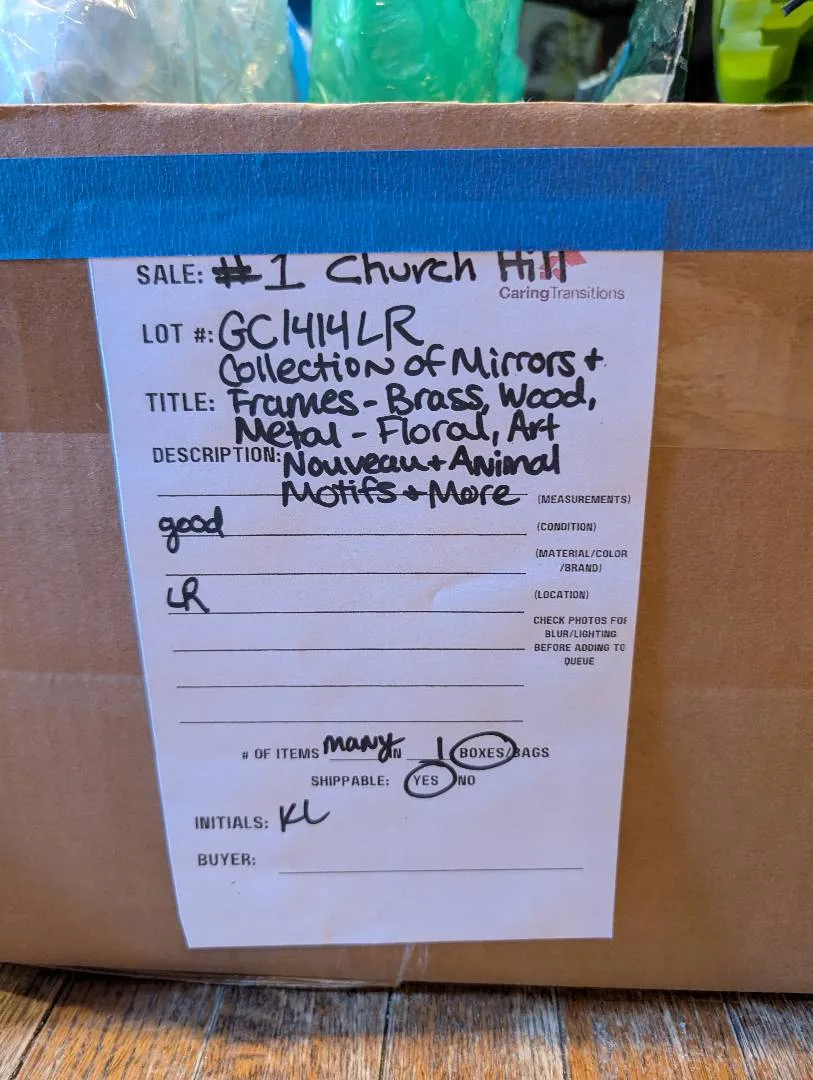 SALE: #1 Church Hill
CaringTransitions
LOT #: GC1414LR
Collection of Mirrors +
TITLE: Frames - Brass, Wood,
Metal - Floral, Art
DESCRIPTION: Nouveau + Animal
Motifs + More (MEASUREMENTS)
good (CONDITION)
(MATERIAL/COLOR
/BRAND)
LR (LOCATION)
CHECK PHOTOS FOR
BLUR/LIGHTING
BEFORE ADDING TO
QUEUE
# OF ITEMS many IN 1 BOXES/BAGS
SHIPPABLE: YES NO
INITIALS: KL
BUYER: